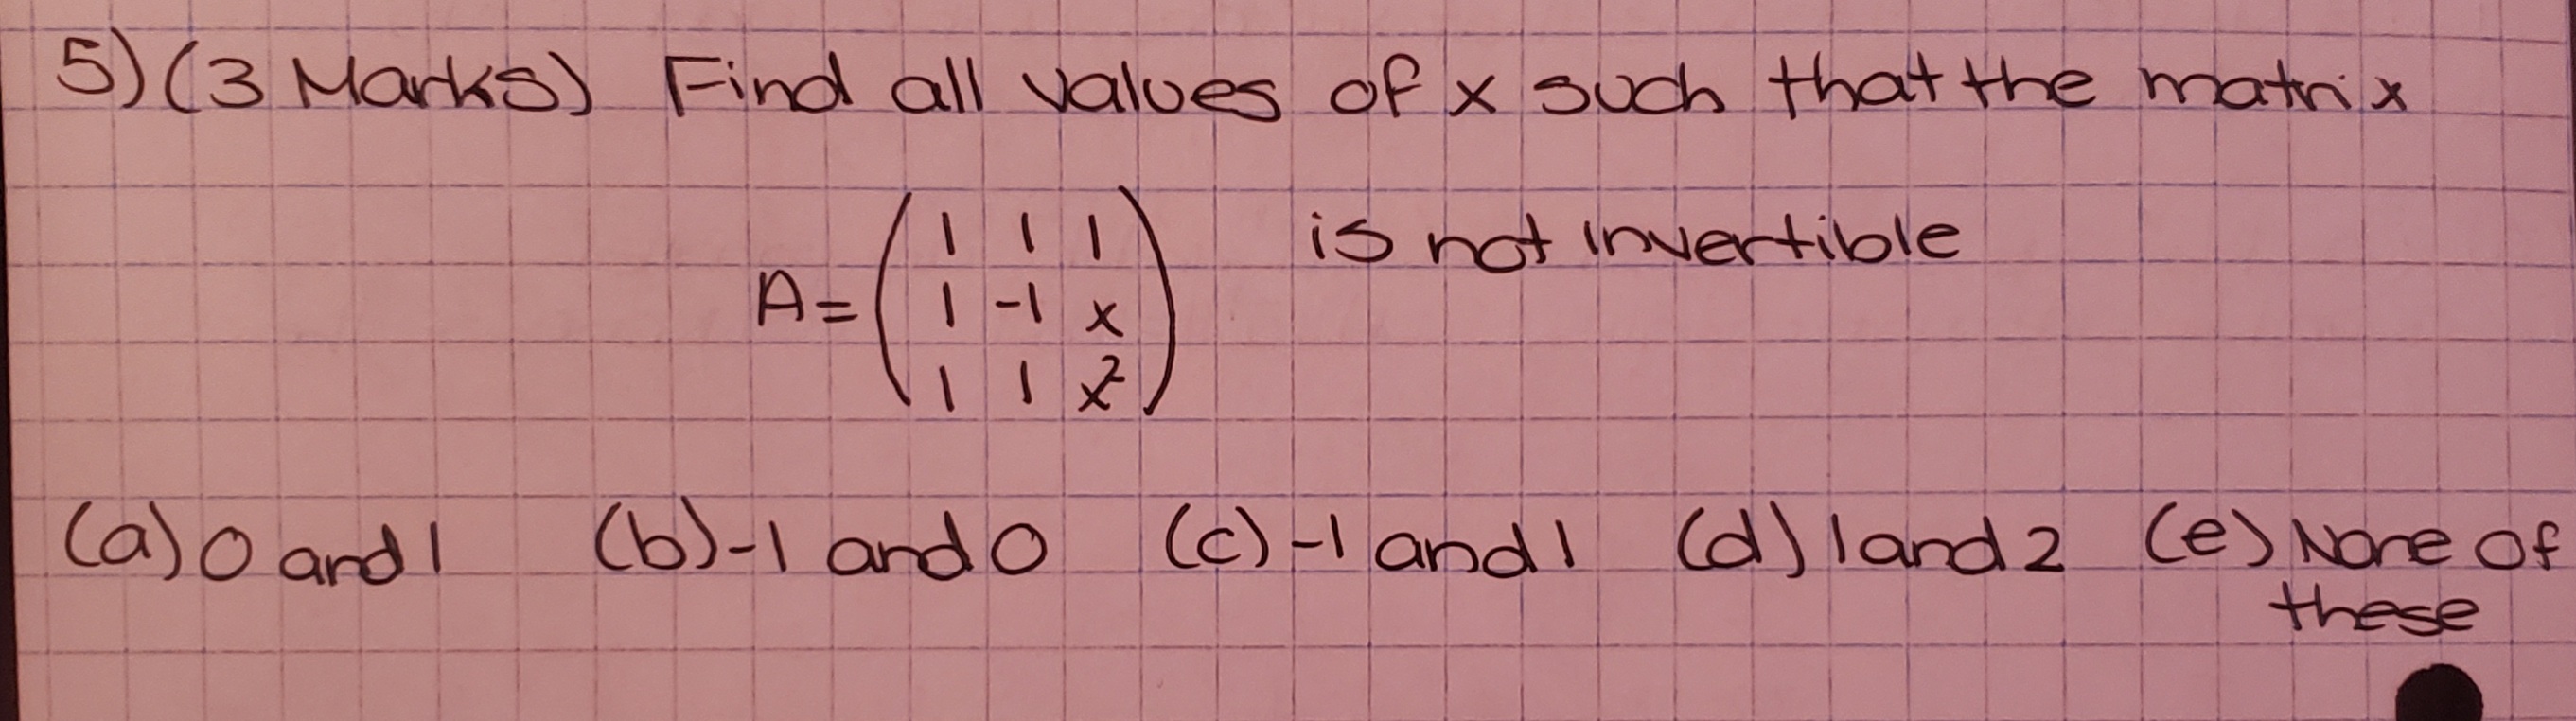 5) (3 Marks) Find all values of x such that the matrix
A = ( 1 1 1 is not invertible
1 -1 x
1 1 x² )
(a) 0 and 1 (b) -1 and 0 (c) -1 and 1 (d) 1 and 2 (e) None of
these